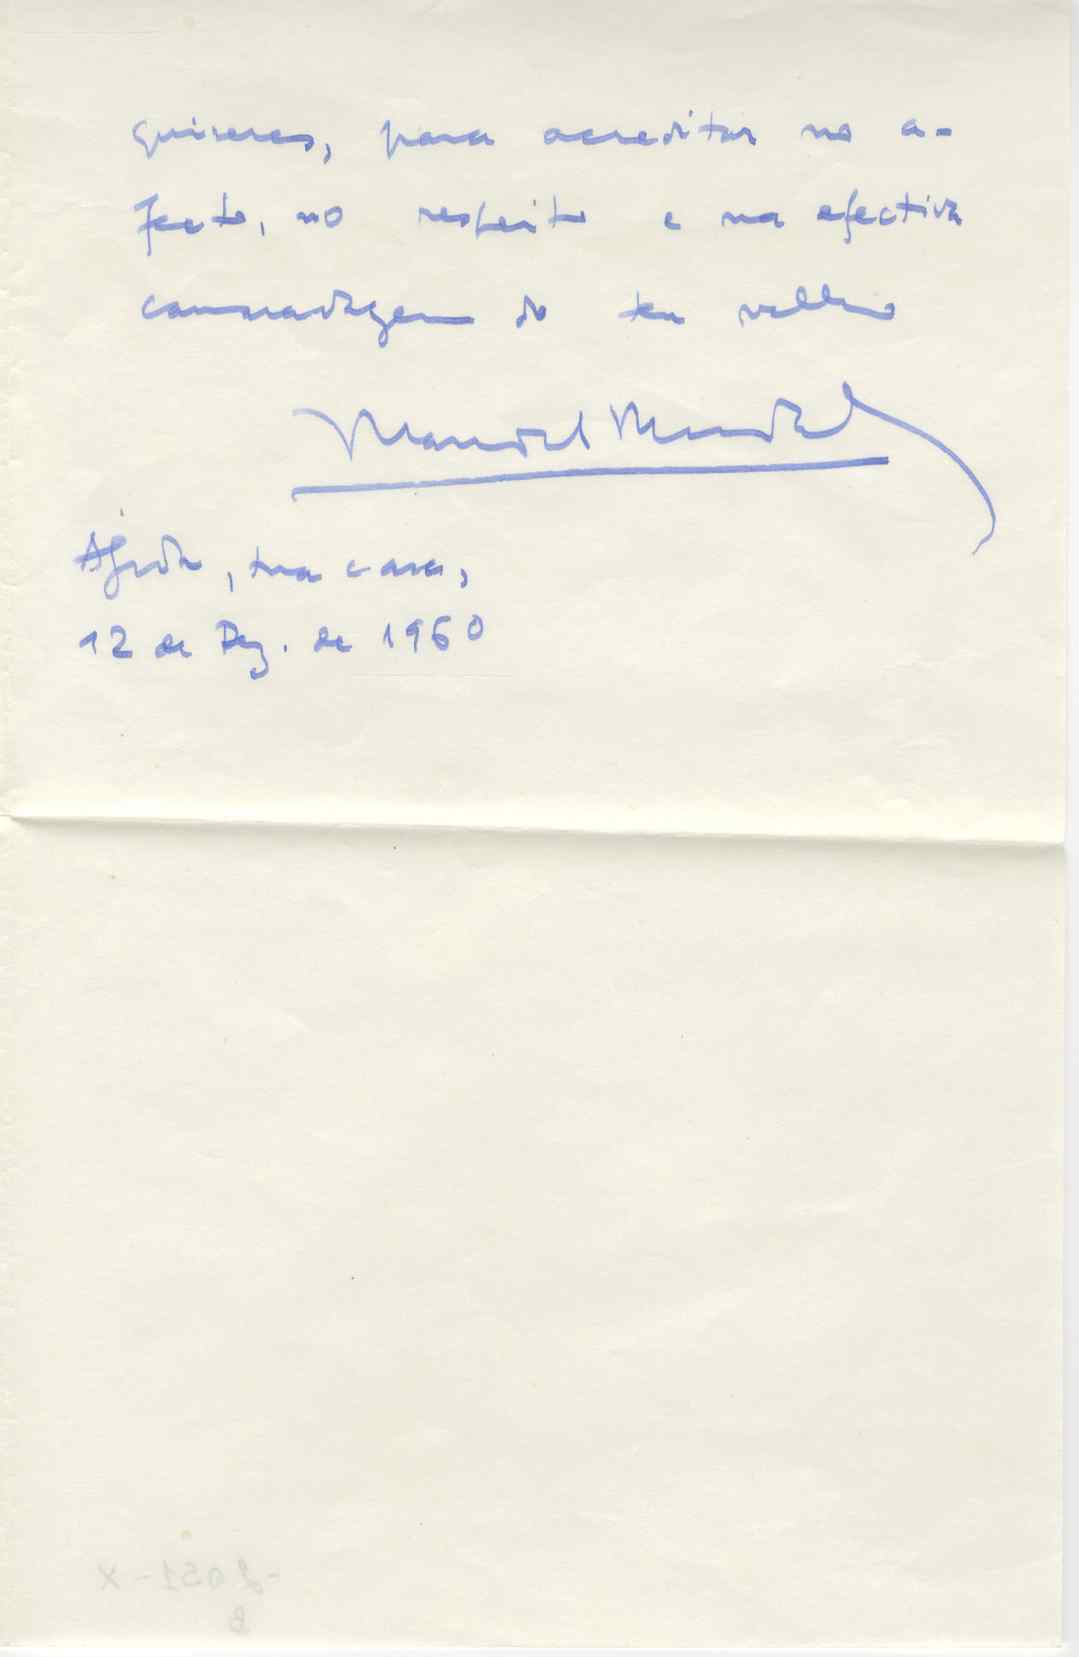 quiseres, para acreditar no a-
fecto, no respeito e na efectiva
camaradagem do teu velho
Manuel Mendes
Ajuda, tua casa,
12 de Dez. de 1960